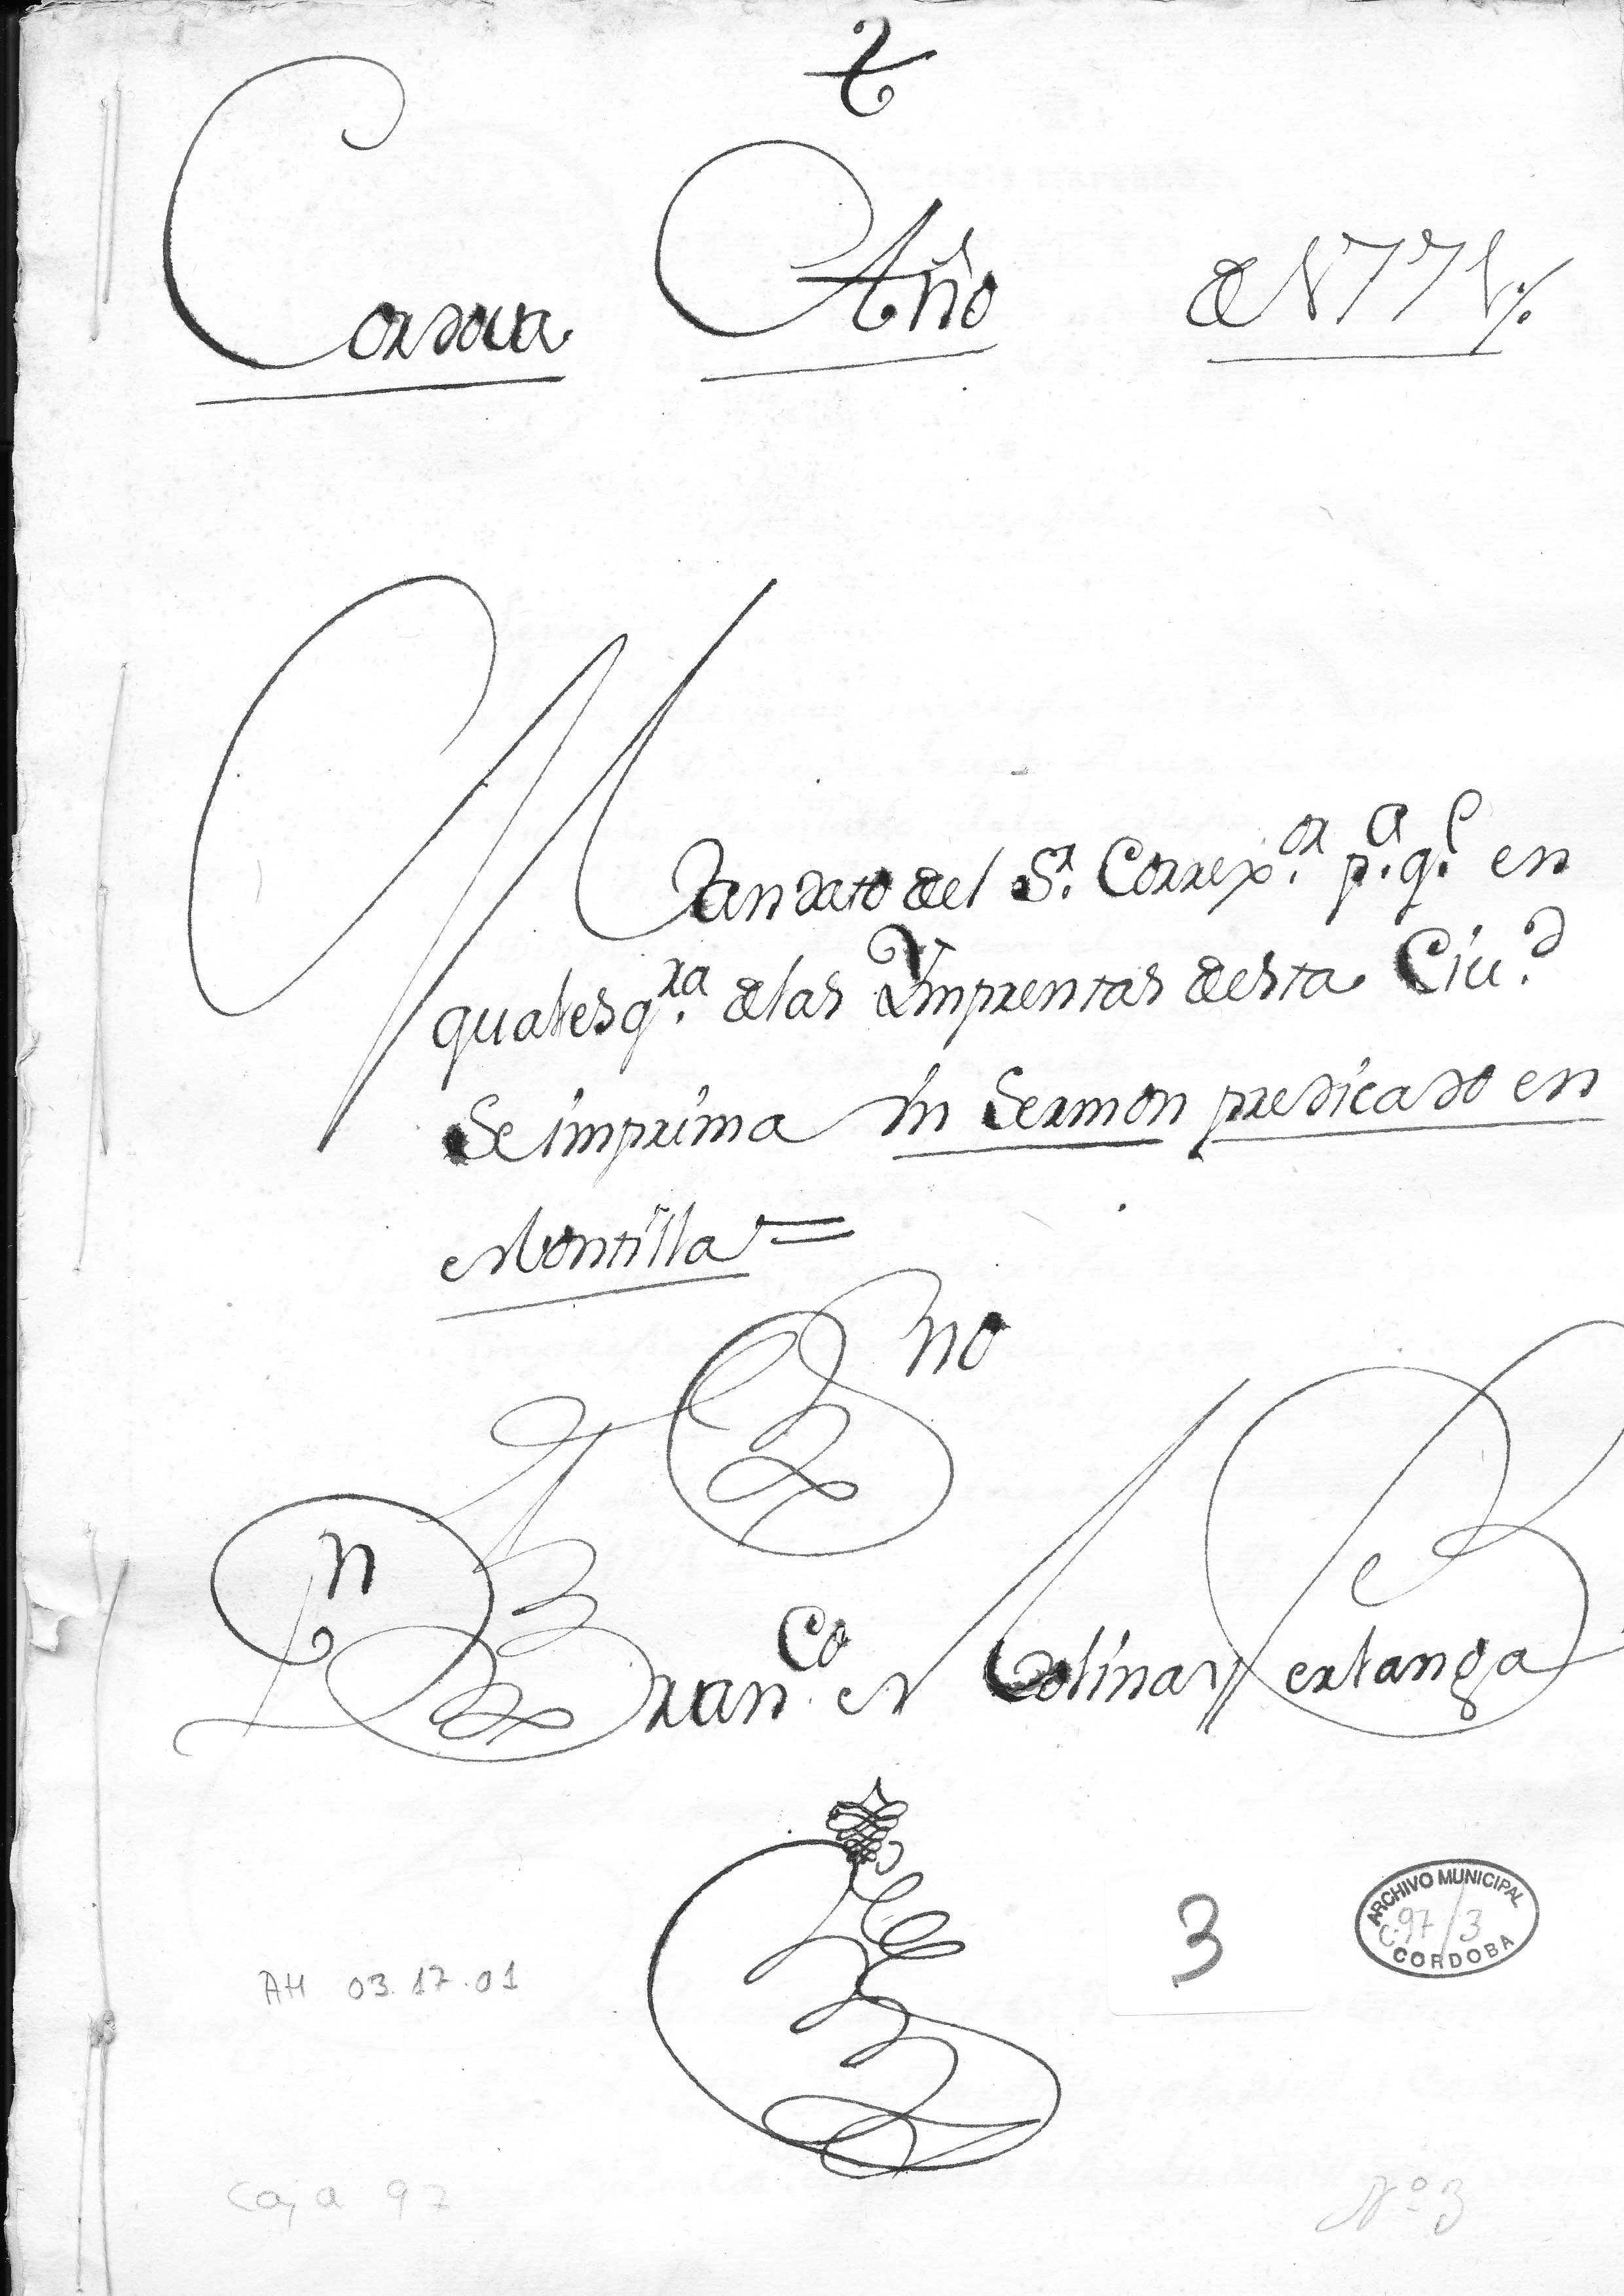 Cordova Año de 1771
Mandato del Sr. Correxor. pa. qe. en
qualesqra. de las Ymprentas desta Ciud.
se imprima un Sermon predicado en
Montilla =
Esno
Dn Franco. Molina y Bertanga
AH 03.17.01
3
ARCHIVO MUNICIPAL
C-97/3
CORDOBA
Caja 97
Nº 3